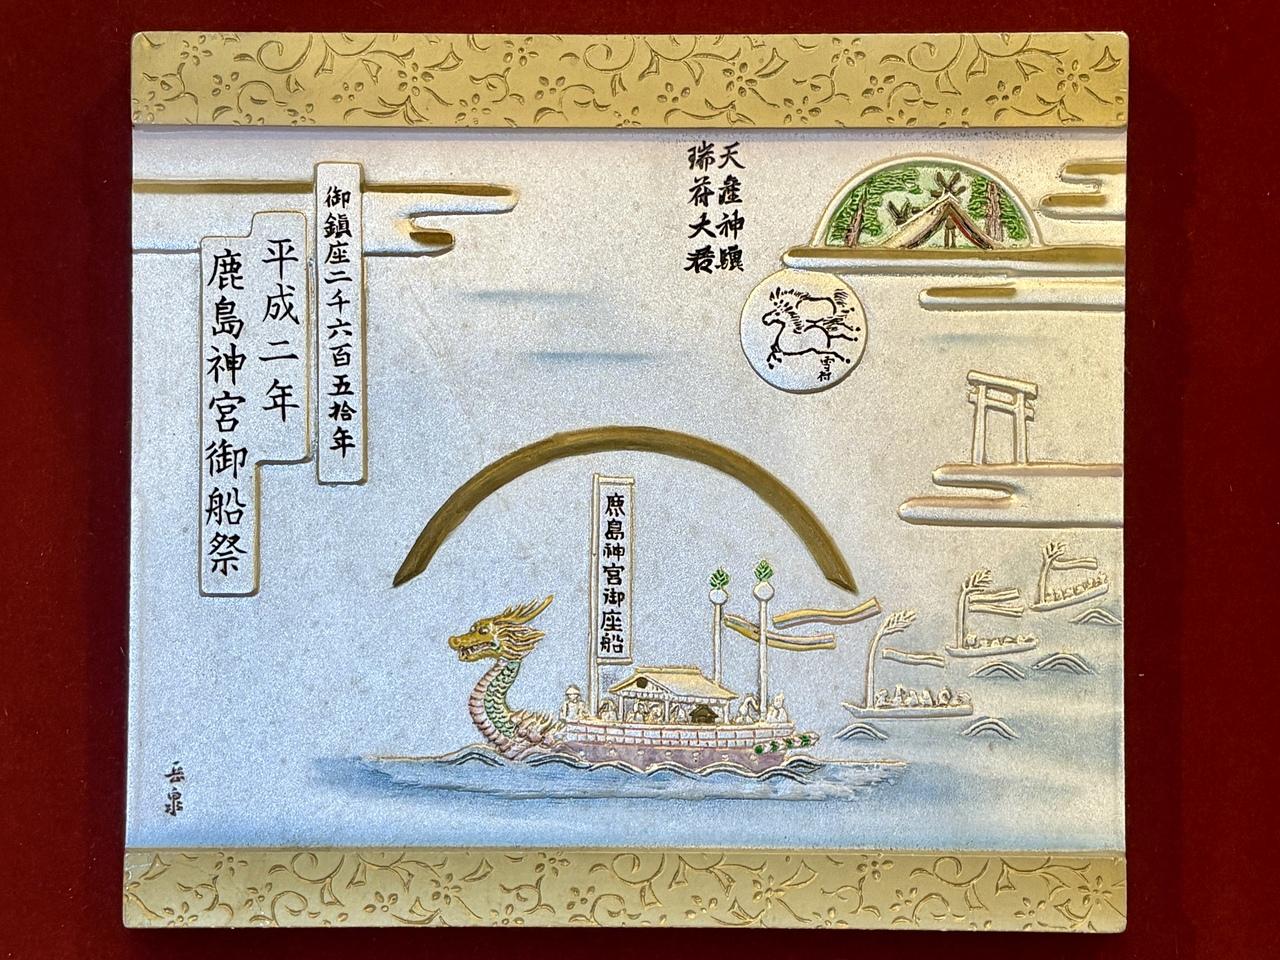 御鎮座二千六百五拾年
平成二年
鹿島神宮御船祭
天産神驥
瑞符大君
雪符
鹿島神宮御座船
岳泉